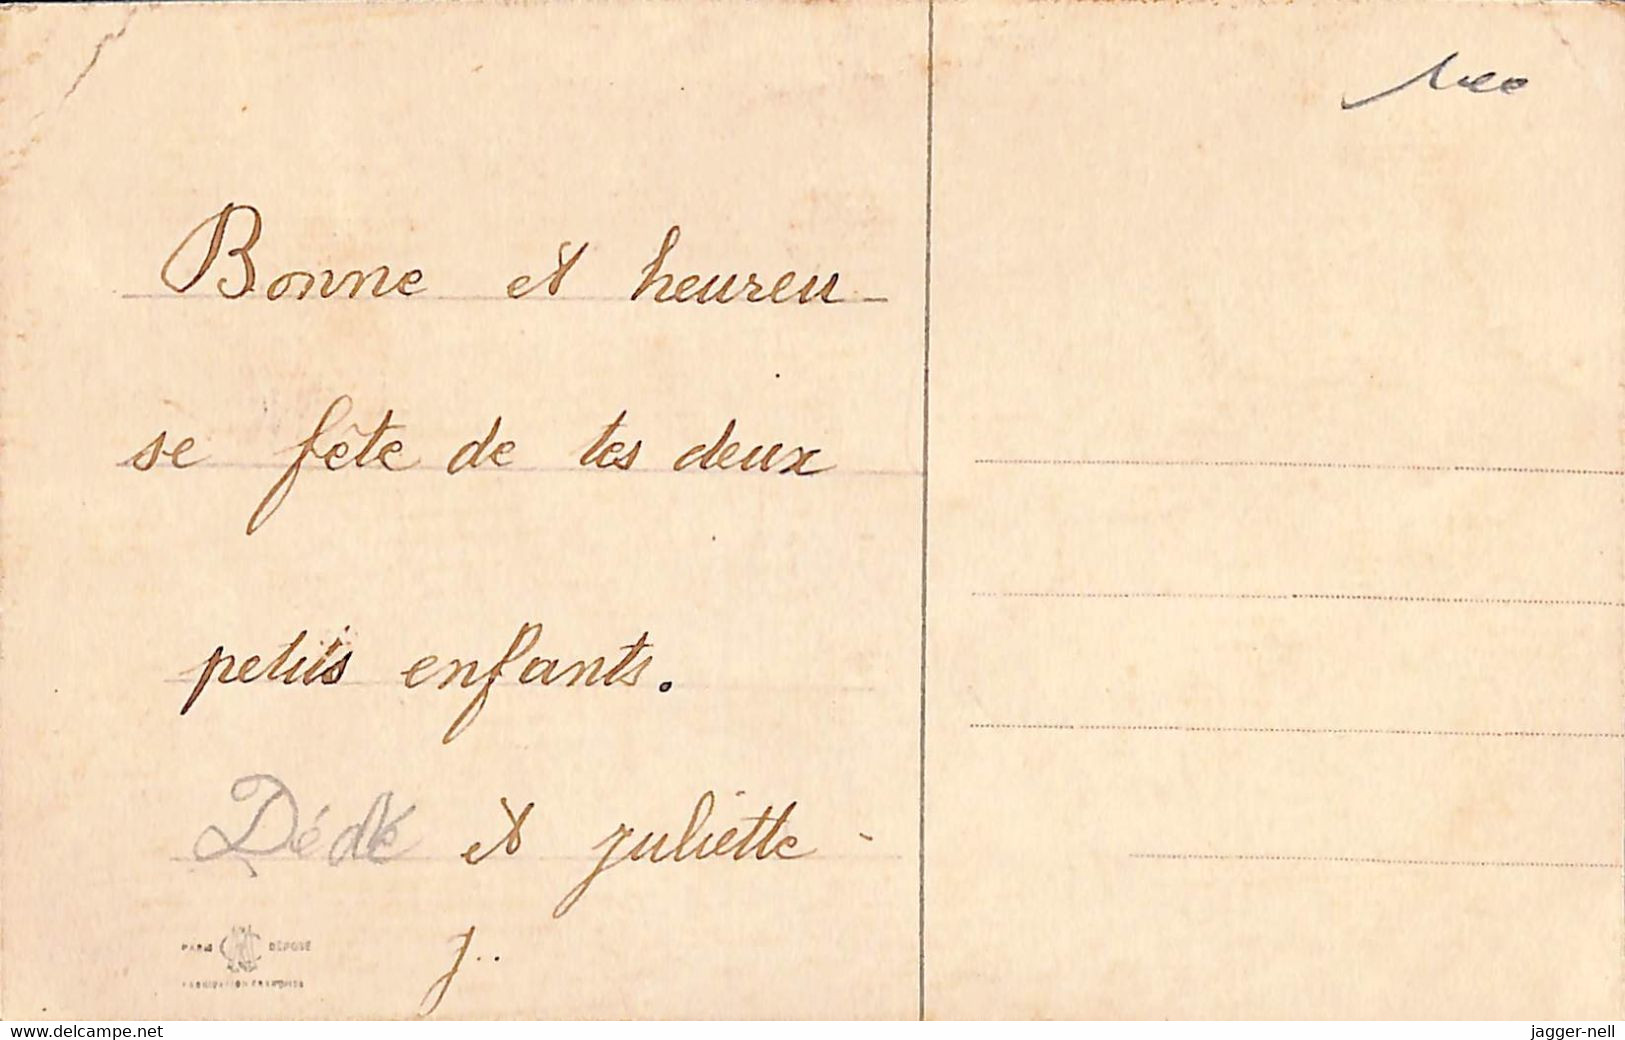 Bonne et heureu-
se fête de tes deux
petits enfants.
Dédé et juliette -
J..
PARIS DÉPOSÉ
FABRICATION FRANÇAISE
www.delcampe.net
jagger-nell